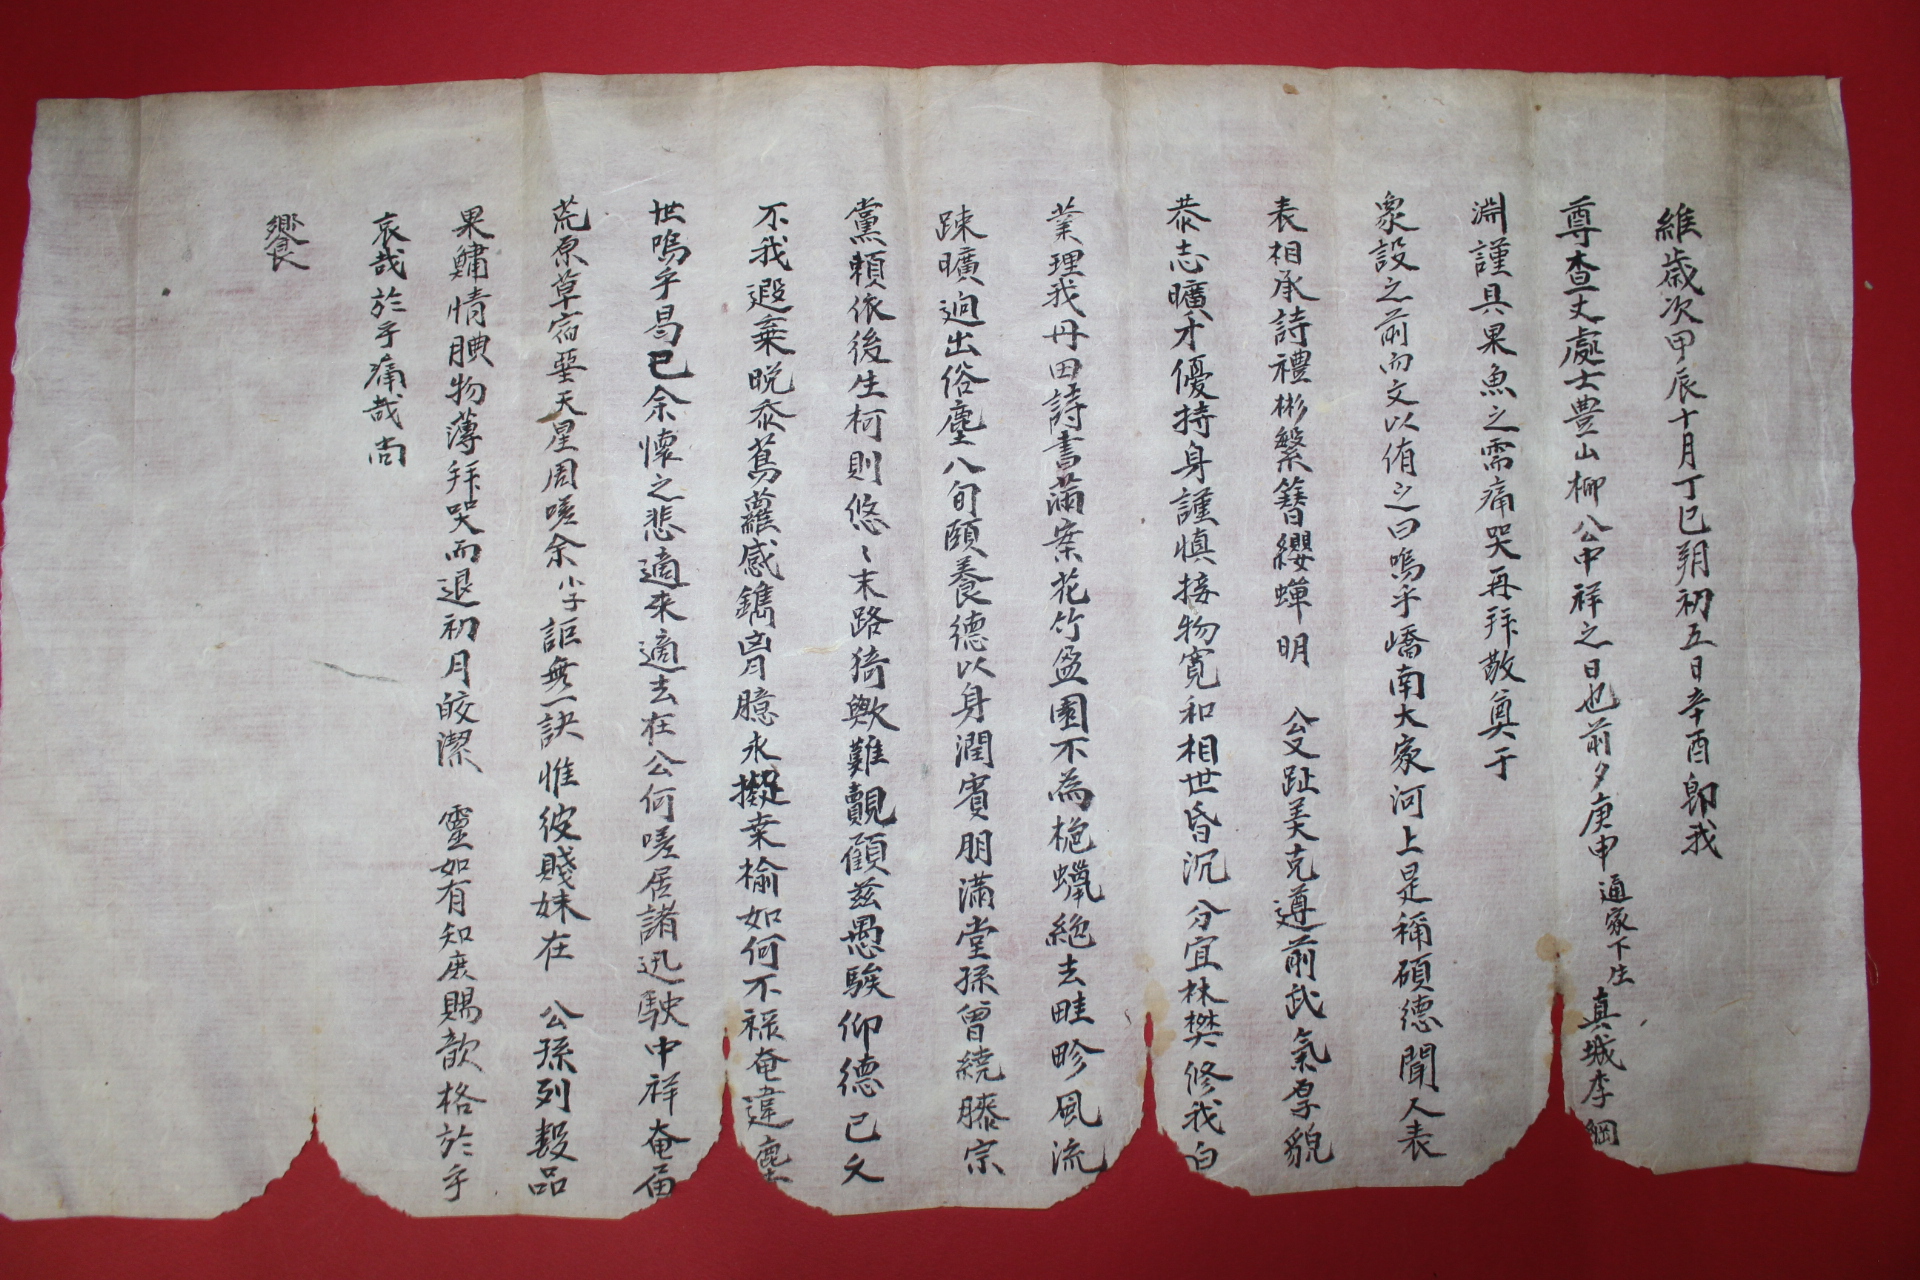 維歲次甲辰十月丁巳朔初五日辛酉卽我
尊查丈處士豊山柳公中祥之日也前夕庚申通家下生真城李綱
淵謹具果魚之需痛哭再拜敬奠于
象設之前而文以侑之曰嗚乎嶠南大家河上是稱碩德聞人表
表相承詩禮彬繁簪纓蟬明 公趾美克遵前武氣厚貌
恭志曠才優持身謹愼接物寬和相世昏沉分宜林樊修我白
業理我丹田詩書滿案花竹盈園不為梔蠟絶去畦畛風流
踈曠逈出俗塵八旬頤養德以身潤賓朋滿堂孫曾繞膝宗
黨賴依後生柯則悠〻末路猗歟難覿顧玆愚騃仰德已久
不我遐棄晩忝蔦蘿感鐫胷臆永擬桒榆如何不祿奄違塵
世嗚乎曷已余懷之悲適來適去在公何嗟居諸迅駛中祥奄届
荒原草宿堊天星周嗟余小子詎無一訣惟彼賤妹在 公孫列數品
果鱐情腆物薄拜哭而退初月皎潔 靈如有知庶賜歆格於乎
哀哉於乎痛哉尚
饗